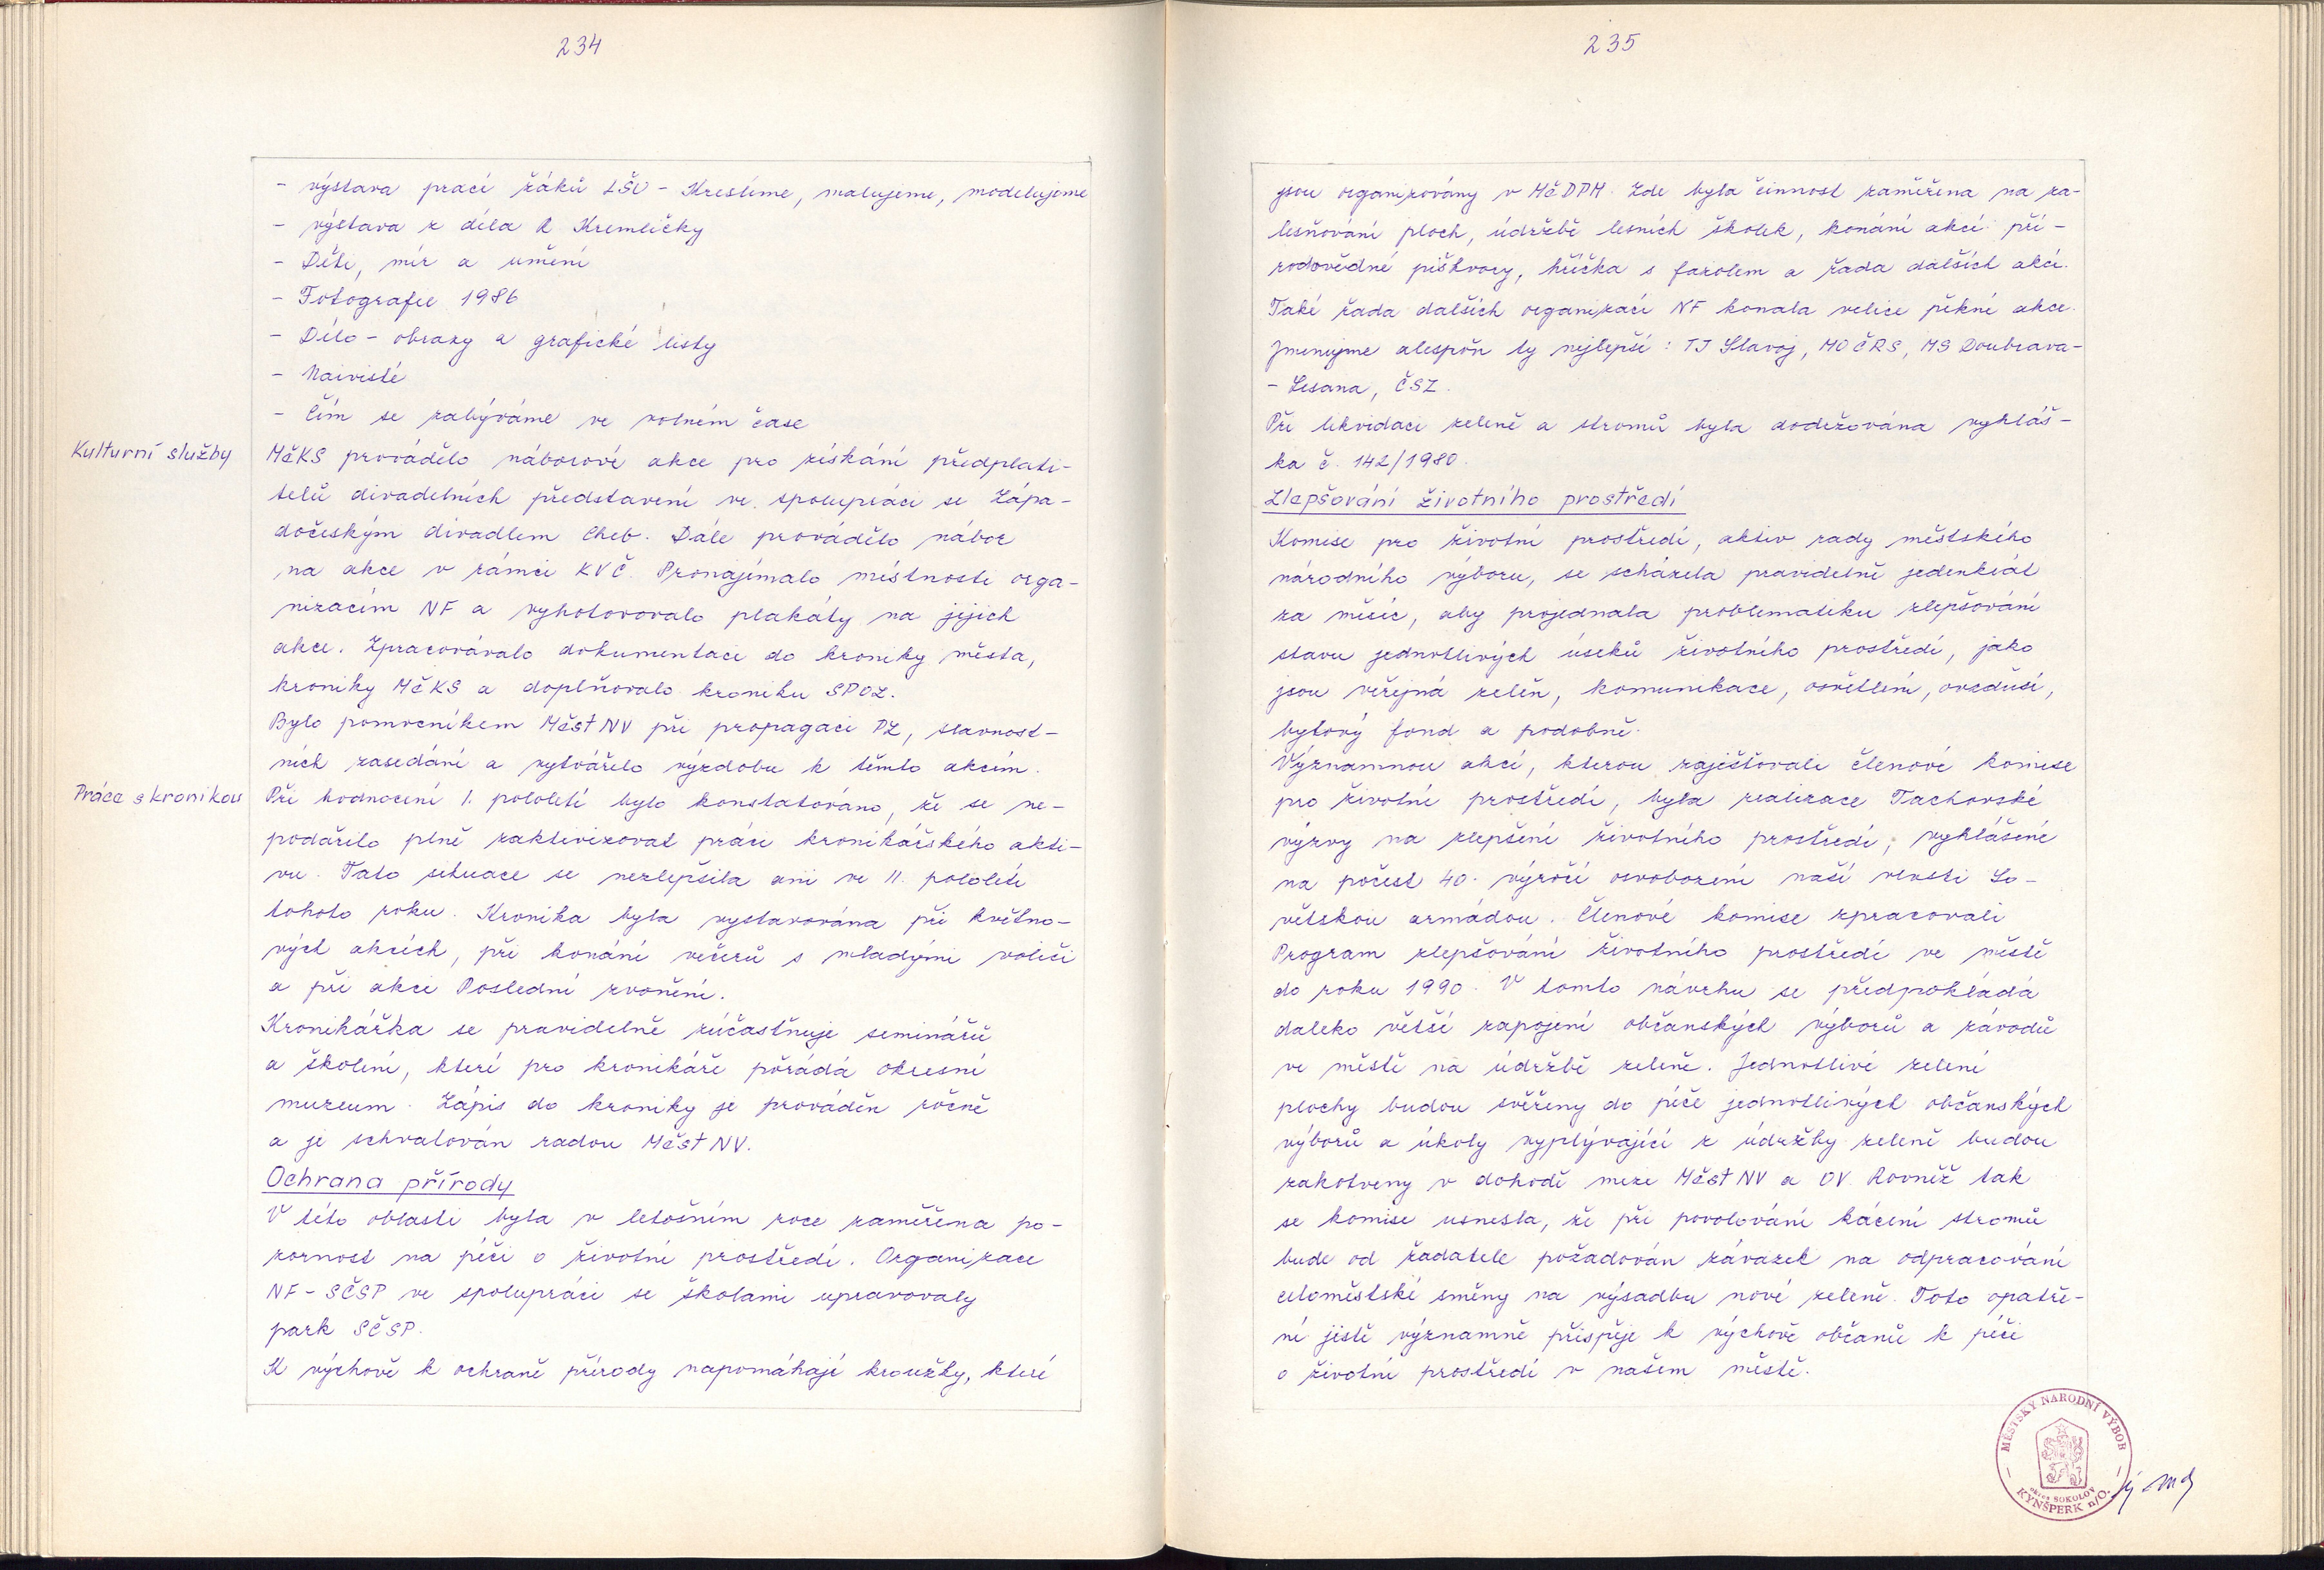 234
- výstava prací žáků LŠU - Kreslíme, malujeme, modelujeme
- výstava z díla R. Kremličky
- Děti, mír a umění
- Fotografie 1986
- Dílo - obrazy a grafické listy
- Naivisté
- Čím se zabýváme ve volném čase
Kulturní služby
MěKS provádělo náborové akce pro získání předplati-
telů divadelních představení ve spolupráci se Zápa-
dočeským divadlem Cheb. Dále provádělo nábor
na akce v rámci KVČ. Pronajímalo místnosti orga-
nizacím NF a vyhotovovalo plakáty na jejich
akce. Zpracovávalo dokumentaci do kroniky města,
kroniky MěKS a doplňovalo kroniku SPOZ.
Bylo pomocníkem MěstNV při propagaci PZ, slavnost-
ních zasedání a vytvářelo výzdobu k těmto akcím.
Práce s kronikou
Při hodnocení I. pololetí bylo konstatováno, že se ne-
podařilo plně zaktivizovat práci kronikářského akti-
vu. Tato situace se nezlepšila ani ve II. pololetí
tohoto roku. Kronika byla vystavována při květno-
vých akcích, při konání večerů s mladými voliči
a při akci Poslední zvonění.
Kronikářka se pravidelně zúčastňuje seminářů
a školení, které pro kronikáře pořádá okresní
muzeum. Zápis do kroniky je prováděn ročně
a je schvalován radou MěstNV.
Ochrana přírody
V této oblasti byla v letošním roce zaměřena po-
zornost na péči o životní prostředí. Organizace
NF - SČSP ve spolupráci se školami upravovaly
park SČSP.
K výchově k ochraně přírody napomáhají kroužky, které
235
jsou organizovány v MěDPM. Zde byla činnost zaměřena na za-
lesňování ploch, údržbě lesních školek, konání akcí: pří-
rodovědné piškvory, hříčka s fazolem a řada dalších akcí.
Také řada dalších organizací NF konala velice pěkné akce.
Jmenujme alespoň ty nejlepší: TJ Slavoj, MO ČRS, MS Doubrava-
- Lesana, ČSZ.
Při likvidaci zeleně a stromů byla dodržována vyhláš-
ka č. 142/1980.
Zlepšování životního prostředí
Komise pro životní prostředí, aktiv rady městského
národního výboru, se scházela pravidelně jedenkrát
za měsíc, aby projednala problematiku zlepšování
stavu jednotlivých úseků životního prostředí, jako
jsou veřejná zeleň, komunikace, osvětlení, ovzduší,
bytový fond a podobně.
Významnou akcí, kterou zajišťovali členové komise
pro životní prostředí, byla realizace Tachovské
výzvy na zlepšení životního prostředí, vyhlášené
na počest 40. výročí osvobození naší vlasti So-
větskou armádou. Členové komise zpracovali
Program zlepšování životního prostředí ve městě
do roku 1990. V tomto návrhu se předpokládá
daleko větší zapojení občanských výborů a závodů
ve městě na údržbě zeleně. Jednotlivé zelené
plochy budou svěřeny do péče jednotlivých občanských
výborů a úkoly vyplývající z údržby zeleně budou
zakotveny v dohodě mezi MěstNV a OV. Rovněž tak
se komise usnesla, že při povolování kácení stromů
bude od žadatele požadován závazek na odpracování
celoměstské směny na výsadbu nové zeleně. Toto opatře-
ní jistě významně přispěje k výchově občanů k péči
o životní prostředí v našem městě.
MĚSTSKÝ NÁRODNÍ VÝBOR
okres SOKOLOV
KYNŠPERK n/O.